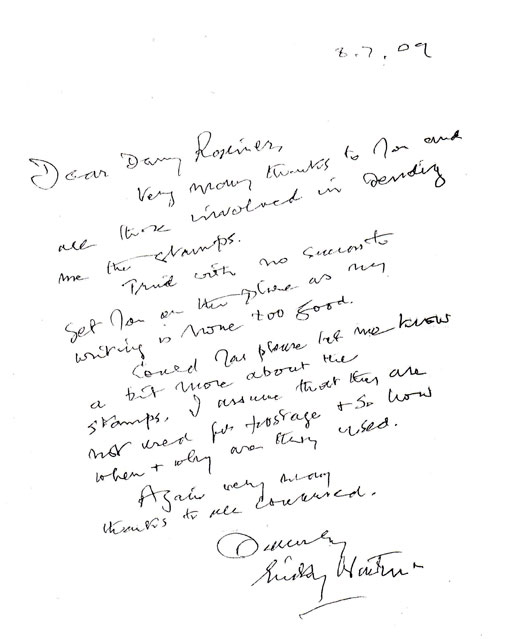 8.7.09
Dear Danny Rosiner,
Very many thanks to you and
all those involved in sending
me the stamps.
Tried with no success to
get you on the phone as my
writing is none too good.
Could you please let me know
a bit more about the
stamps, I assume that they are
not used for postage + so how
when + why are they used.
Again very many
thanks to all concerned.
Sincerely